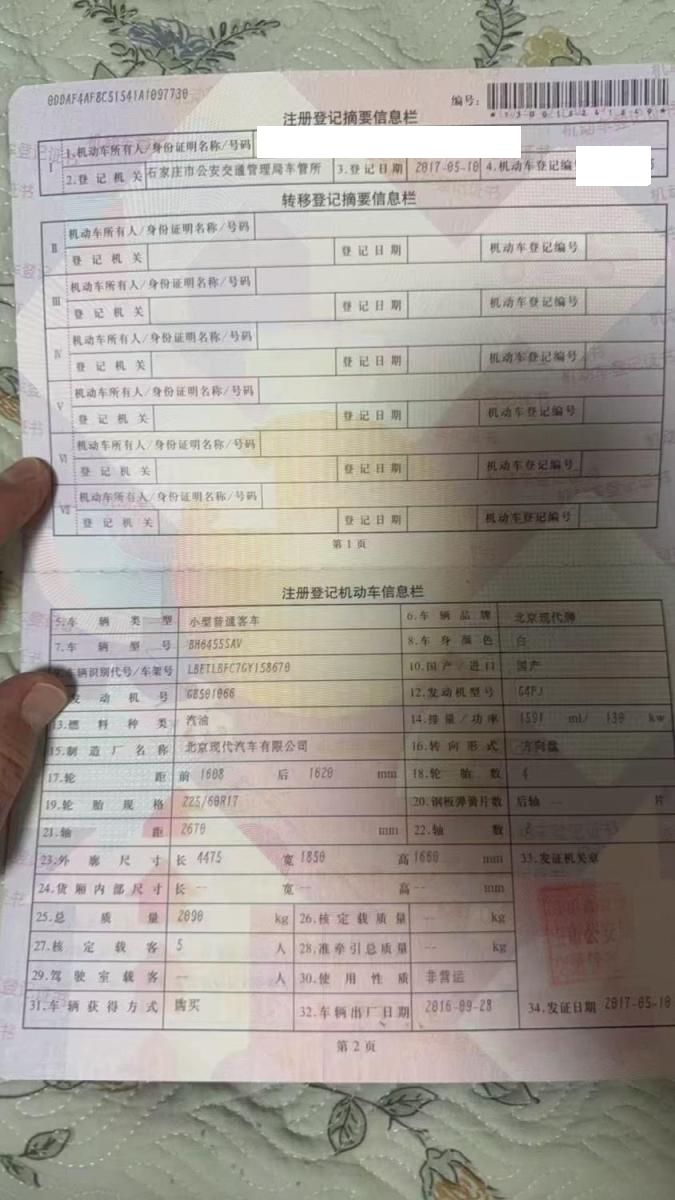 0DDAF4AF8C51541A1097730
编号:
注册登记摘要信息栏
I 1.机动车所有人/身份证明名称/号码
2.登记机关 石家庄市公安交通管理局车管所 3.登记日期 2017-05-10 4.机动车登记编
转移登记摘要信息栏
II 机动车所有人/身份证明名称/号码
登记机关 登记日期 机动车登记编号
III 机动车所有人/身份证明名称/号码
登记机关 登记日期 机动车登记编号
IV 机动车所有人/身份证明名称/号码
登记机关 登记日期 机动车登记编号
V 机动车所有人/身份证明名称/号码
登记机关 登记日期 机动车登记编号
VI 机动车所有人/身份证明名称/号码
登记机关 登记日期 机动车登记编号
VII 机动车所有人/身份证明名称/号码
登记机关 登记日期 机动车登记编号
第1页
注册登记机动车信息栏
5.车辆类型 小型普通客车 6.车辆品牌 北京现代牌
7.车辆型号 BH6455SAV 8.车身颜色 白
车辆识别代号/车架号 LBETLBFC7GY158670 10.国产/进口 国产
发动机号 GB501066 12.发动机型号 G4FJ
13.燃料种类 汽油 14.排量/功率 1591 ml/ 130 kw
15.制造厂名称 北京现代汽车有限公司 16.转向形式 方向盘
17.轮距 前 1608 后 1620 mm 18.轮胎数 4
19.轮胎规格 225/60R17 20.钢板弹簧片数 后轴 -- 片
21.轴距 2670 mm 22.轴数 2
23.外廓尺寸 长 4475 宽 1850 高 1660 mm 33.发证机关章
24.货厢内部尺寸 长 -- 宽 -- 高 -- mm
25.总质量 2090 kg 26.核定载质量 -- kg
27.核定载客 5 人 28.准牵引总质量 -- kg
29.驾驶室载客 -- 人 30.使用性质 非营运
31.车辆获得方式 购买 32.车辆出厂日期 2016-09-28 34.发证日期 2017-05-10
第2页